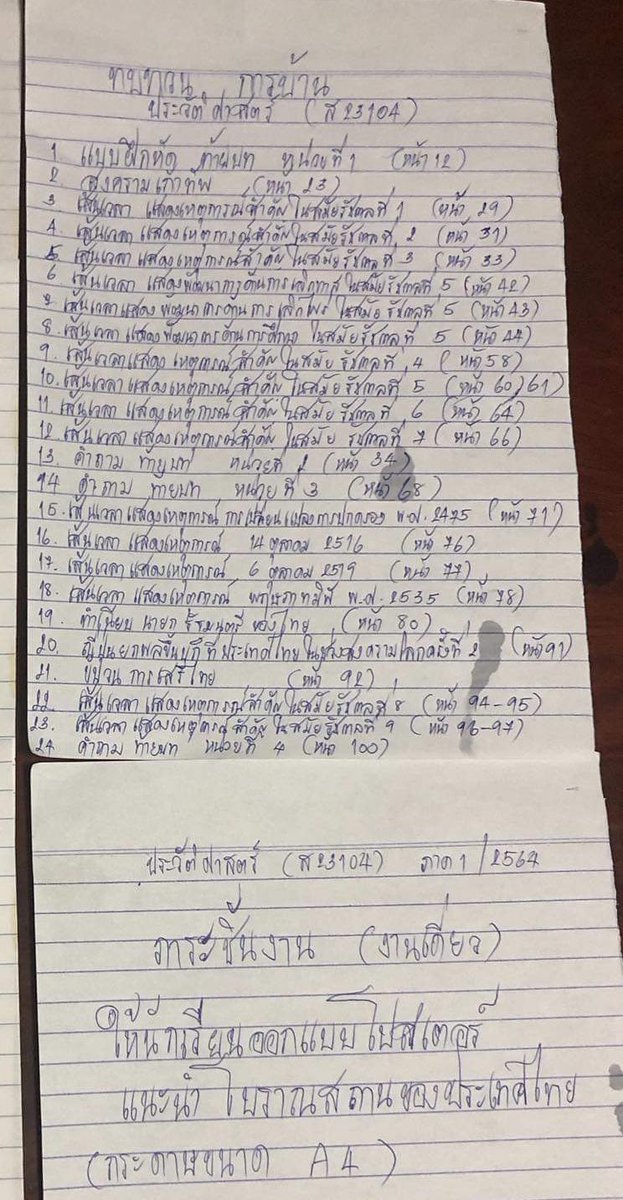 ทบทวน การบ้าน
ประวัติศาสตร์ (ส23104)
1 แบบฝึกหัด ท้ายบท หน่วยที่ 1 (หน้า 12)
2 สงครามเก้าทัพ (หน้า 23)
3 เส้นเวลา แสดงเหตุการณ์สำคัญ ในสมัยรัชกาลที่ 1 (หน้า 29)
4. เส้นเวลา แสดงเหตุการณ์สำคัญ ในสมัยรัชกาลที่ 2 (หน้า 31)
5 เส้นเวลา แสดงเหตุการณ์สำคัญ ในสมัยรัชกาลที่ 3 (หน้า 33)
6 เส้นเวลา แสดงพัฒนาการด้านการเลิกทาส ในสมัยรัชกาลที่ 5 (หน้า 42)
7 เส้นเวลา แสดง พัฒนาการด้าน การ เลิกไพร่ ในสมัยรัชกาลที่ 5 (หน้า 43)
8. เส้นเวลา แสดงพัฒนาการด้านการศึกษา ในสมัยรัชกาลที่ 5 (หน้า 44)
9. เส้นเวลาแสดง เหตุการณ์ สำคัญ ในสมัย รัชกาลที่ 4 (หน้า 58)
10. เส้นเวลา แสดงเหตุการณ์ สำคัญ ในสมัย รัชกาลที่ 5 (หน้า 60,61)
11. เส้นเวลา แสดงเหตุการณ์ สำคัญ ในสมัยรัชกาลที่ 6 (หน้า 64)
12 เส้นเวลา แสดงเหตุการณ์สำคัญ ในสมัย รัชกาลที่ 7 (หน้า 66)
13. คำถาม ท้ายบท หน่วยที่ 2 (หน้า 34)
14 คำถาม ท้ายบท หน่วย ที่ 3 (หน้า 68)
15. เส้นเวลา แสดงเหตุการณ์ การเปลี่ยนแปลงการปกครอง พ.ศ. 2475 (หน้า 71)
16. เส้นเวลา แสดงเหตุการณ์ 14 ตุลาคม 2516 (หน้า 76)
17. เส้นเวลา แสดงเหตุการณ์ 6 ตุลาคม 2519 (หน้า 77)
18. เส้นเวลา แสดงเหตุการณ์ พฤษภาทมิฬ พ.ศ. 2535 (หน้า 78)
19. ทำเนียบ นายก รัฐมนตรี ของไทย (หน้า 80)
20. ญี่ปุ่นยกพลขึ้นบกที่ประเทศไทย ในช่วงสงครามโลกครั้งที่ 2 (หน้า 91)
21. ขบวน การเสรีไทย (หน้า 92)
22. เส้นเวลา แสดงเหตุการณ์สำคัญ ในสมัยรัชกาลที่ 8 (หน้า 94-95)
23. เส้นเวลา แสดงเหตุการณ์ สำคัญ ในสมัยรัชกาลที่ 9 (หน้า 96-97)
24 คำถาม ท้ายบท หน่วยที่ 4 (หน้า 100)
ประวัติศาสตร์ (ส23104) ภาค 1/2564
ภาระชิ้นงาน (งานเดี่ยว)
ให้นักเรียนออกแบบโปสเตอร์
แนะนำ โบราณสถานของประเทศไทย
(กระดาษขนาด A4)